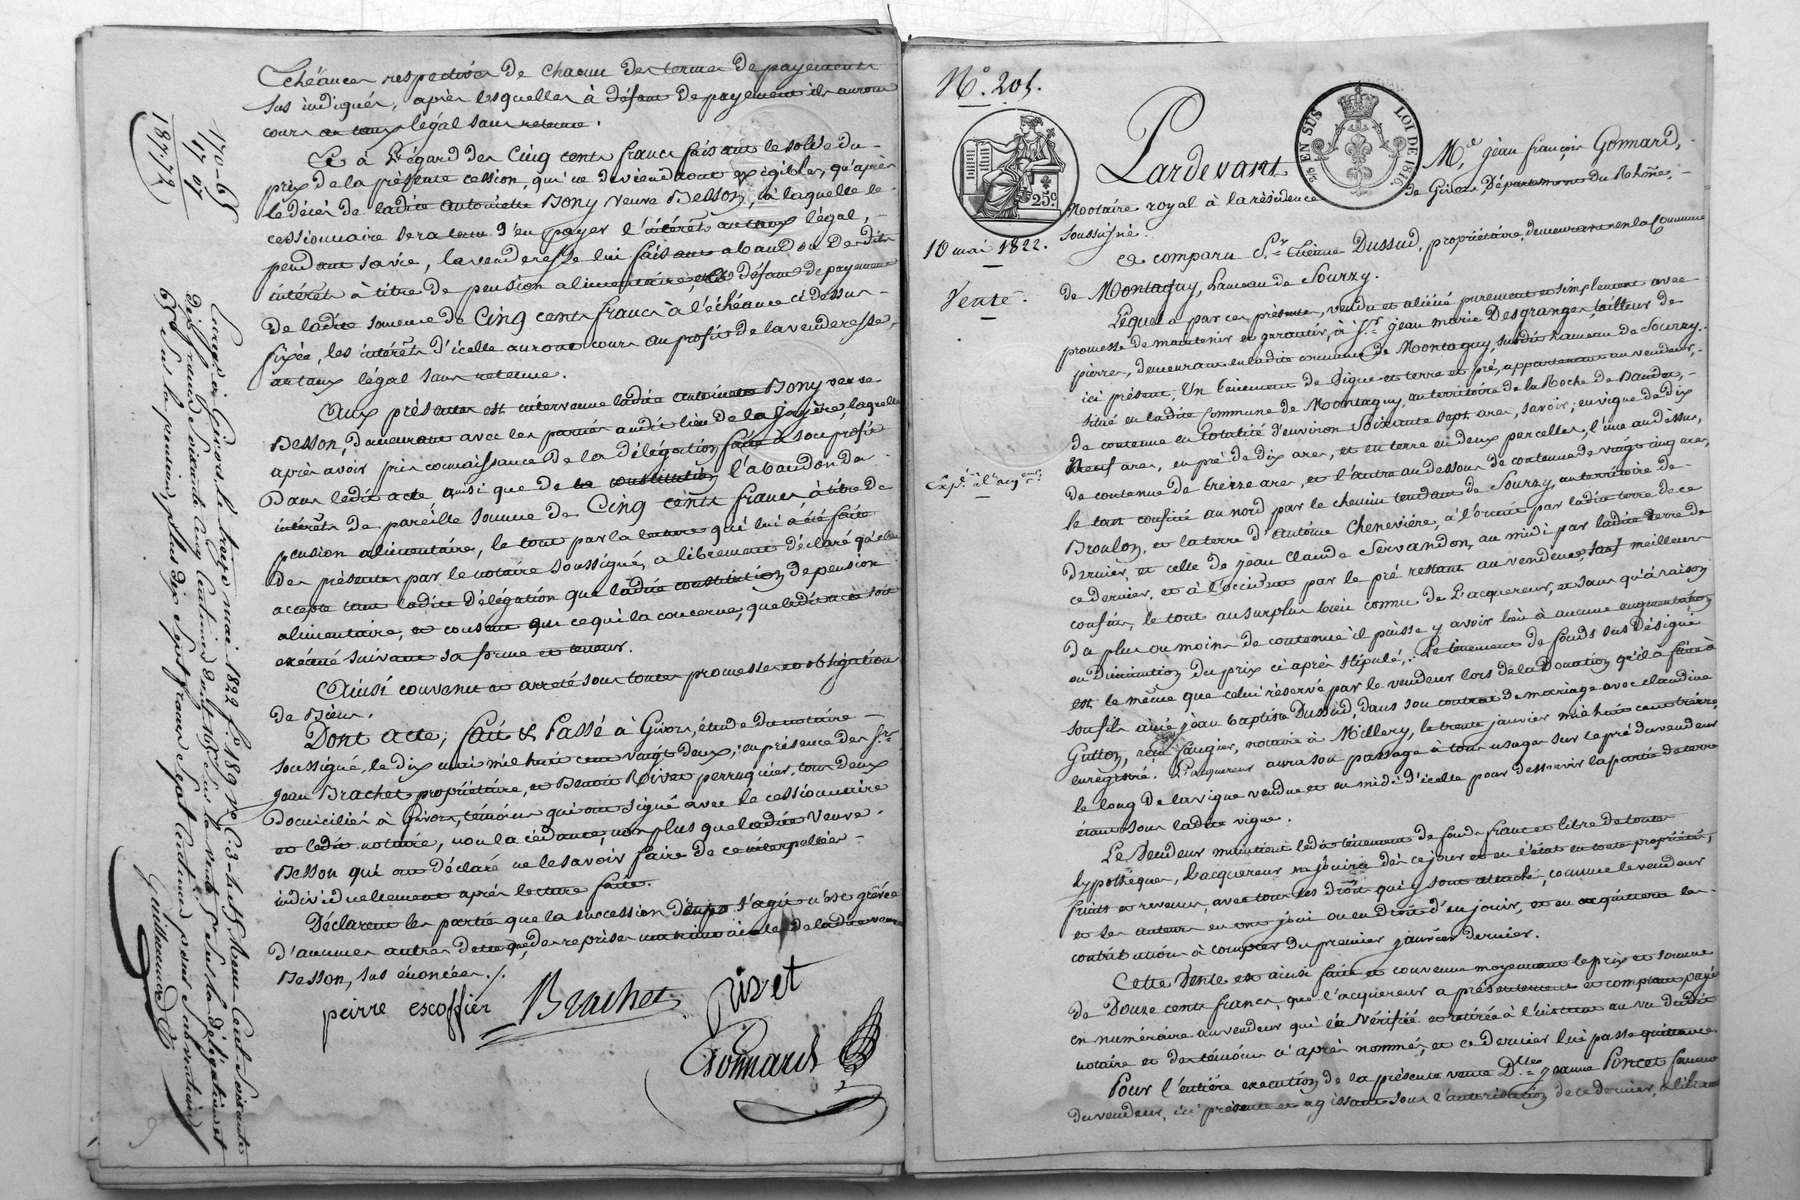 Echéances respectives de chacun des termes de payements
sus indiqués, après lesquelles à défaut de payement ils auront
cours au taux légal sans retenue.
Et à l'égard des Cinq cents francs faisant le solde du
prix de la présente cession, qui ne deviendront exigibles, qu'après
le décès de ladite antoinette Bony veuve Besson, à laquelle le
cessionnaire sera tenu d'en payer l'intérêt au taux légal,
pendant sa vie, la venderesse lui faisant abandon desdits
intérêts à titre de pension alimentaire, et à défaut de payement
de ladite somme de Cinq cents francs à l'échéance ci dessus
fixée, les intérêts d'icelle auront cours au profit de la venderesse,
au taux légal sans retenue.
Aux présentes est intervenue ladite antoinette Bony veuve
Besson, demeurant avec les parties audit lieu de la Joyère, laquelle
après avoir pris connaissance de la délégation faite à son profit
dans ledit acte ainsi que de la constitution l'abandon des
intérêts de pareille somme de Cinq cents francs à titre de
pension alimentaire, le tout par la lecture qui lui a été faite
des présentes par le notaire soussigné, a librement déclaré qu'elle
accepte tant ladite délégation que ladite constitution de pension
alimentaire, et consent que ce qui la concerne, que ledit acte soit
exécuté suivant sa forme et teneur.
Ainsi convenu et arreté sous toutes promesses et obligation
de Biens.
Dont acte, fait & Passé à Givors, étude du notaire
soussigné, le dix mai mil huit cent vingt deux, en présence des srs
Jean Brachet propriétaire, et Benoit Rivet perruquier, tous deux
domiciliés à Givors, témoins qui ont signé avec le cessionnaire
et ledit notaire, non la cédante, non plus que ladite veuve
Besson qui ont déclaré ne le savoir faire de ce interpellées
individuellement après lecture faite.
Déclarent les parties que la succession dont il s'agit n'est grévée
d'aucunes autres dettes que des reprises matrimoniales de ladite veuve
Besson, sus énoncées./.
peirre escoffier Brachet Rivet
Gonnard
170-65
17 07
187-72
Enregistré à Givors le treize mai 1822 fo 189 Vo C. 3 Reçu Cent soixante
dix francs soixante cinq centimes dont sur la vente sur la délégation et
sur la pension, plus dix sept francs sept centimes pour subvention
Guillaumard
No. 205.
25c
10 mai 1822.
Vente.
Expe. à l'acqr.
25 EN SUS LOI DE 1816
Pardevant Me. Jean françois Gonnard,
Notaire royal à la résidence de Givors, Département du Rhône,
soussigné.
ce comparu Sr. Etienne Dussud, propriétaire, demeurant en la Commune
de Montagny, hameau de Sourzy.
Lequel a par ces présentes, vendu et aliéné purement et simplement avec
promesse de maintenir et garantir, à Sr. Jean marie Desgranges, tailleur de
pierres, demeurant en ladite commune de Montagny, susdit hameau de Sourzy
ici présent, Un tènement de Vigne et terre et pré, appartenant au vendeur,
situé en ladite Commune de Montagny, au territoire de la Roche de Baudet,
de contenue en totalité d'environ soixante sept ares, savoir; en vigne de dix
neuf ares, en pré de dix ares, et en terre en deux parcelles, l'une au dessus,
de contenue de treize ares, et l'autre au dessous de contenue de vingt cinq ares,
le tout confiné au nord par le chemin tendant de Sourzy, au territoire de
Broulon, et la terre d'antoine Chenevière, à l'orient par ladite terre de ce
dernier, et celle de jean Claude Servandon, au midi par ladite terre de
ce dernier, et à l'occident par le pré restant au vendeur, sauf meilleurs
confins, le tout au surplus bien connu de l'acquereur, et sans qu'à raison
du plus ou moins de contenue il puisse y avoir lieu à aucune augmentation
ou Diminution du prix ci après stipulé. Le tènement de fonds sus désigné
est le même que celui réservé par le vendeur lors de la donation qu'il a faite à
son fils ainé jean baptiste Dussud, dans son contrat de mariage avec claudine
Guttoz, reçu faugier, notaire à Millery, le trente janvier mil huit cent treize,
enregistré. L'acquereur aura son passage à tous usages sur le pré du vendeur
le long de la vigne vendue et au midi d'icelle pour desservir la partie de terre
étant sous ladite vigne.
Le Vendeur maintient ledit tènement de fonds franc et libre de toute
hypothèque, l'acquereur en jouira dès ce jour et en l'état en toute propriété,
fruits et revenus, avec tous les droits qui y sont attachés, comme le vendeur
et ses auteurs en ont joui ou eu droit d'en jouir, et en acquittera les
contributions à compter du premier janvier dernier.
Cette Vente est ainsi faite et convenue moyennant le prix et somme
de Douze cents francs, que l'acquereur a présentement et comptant payé
en numéraire au vendeur qui l'a vérifiée et retirée à l'instant au vu dudit
notaire et des témoins ci après nommés, et ce dernier lui passe quittance
Pour l'entière execution de la présente vente Dlle. Jeanne Poncet femme
du vendeur, ici présente et agissant sous l'autorisation de ce dernier, a librement